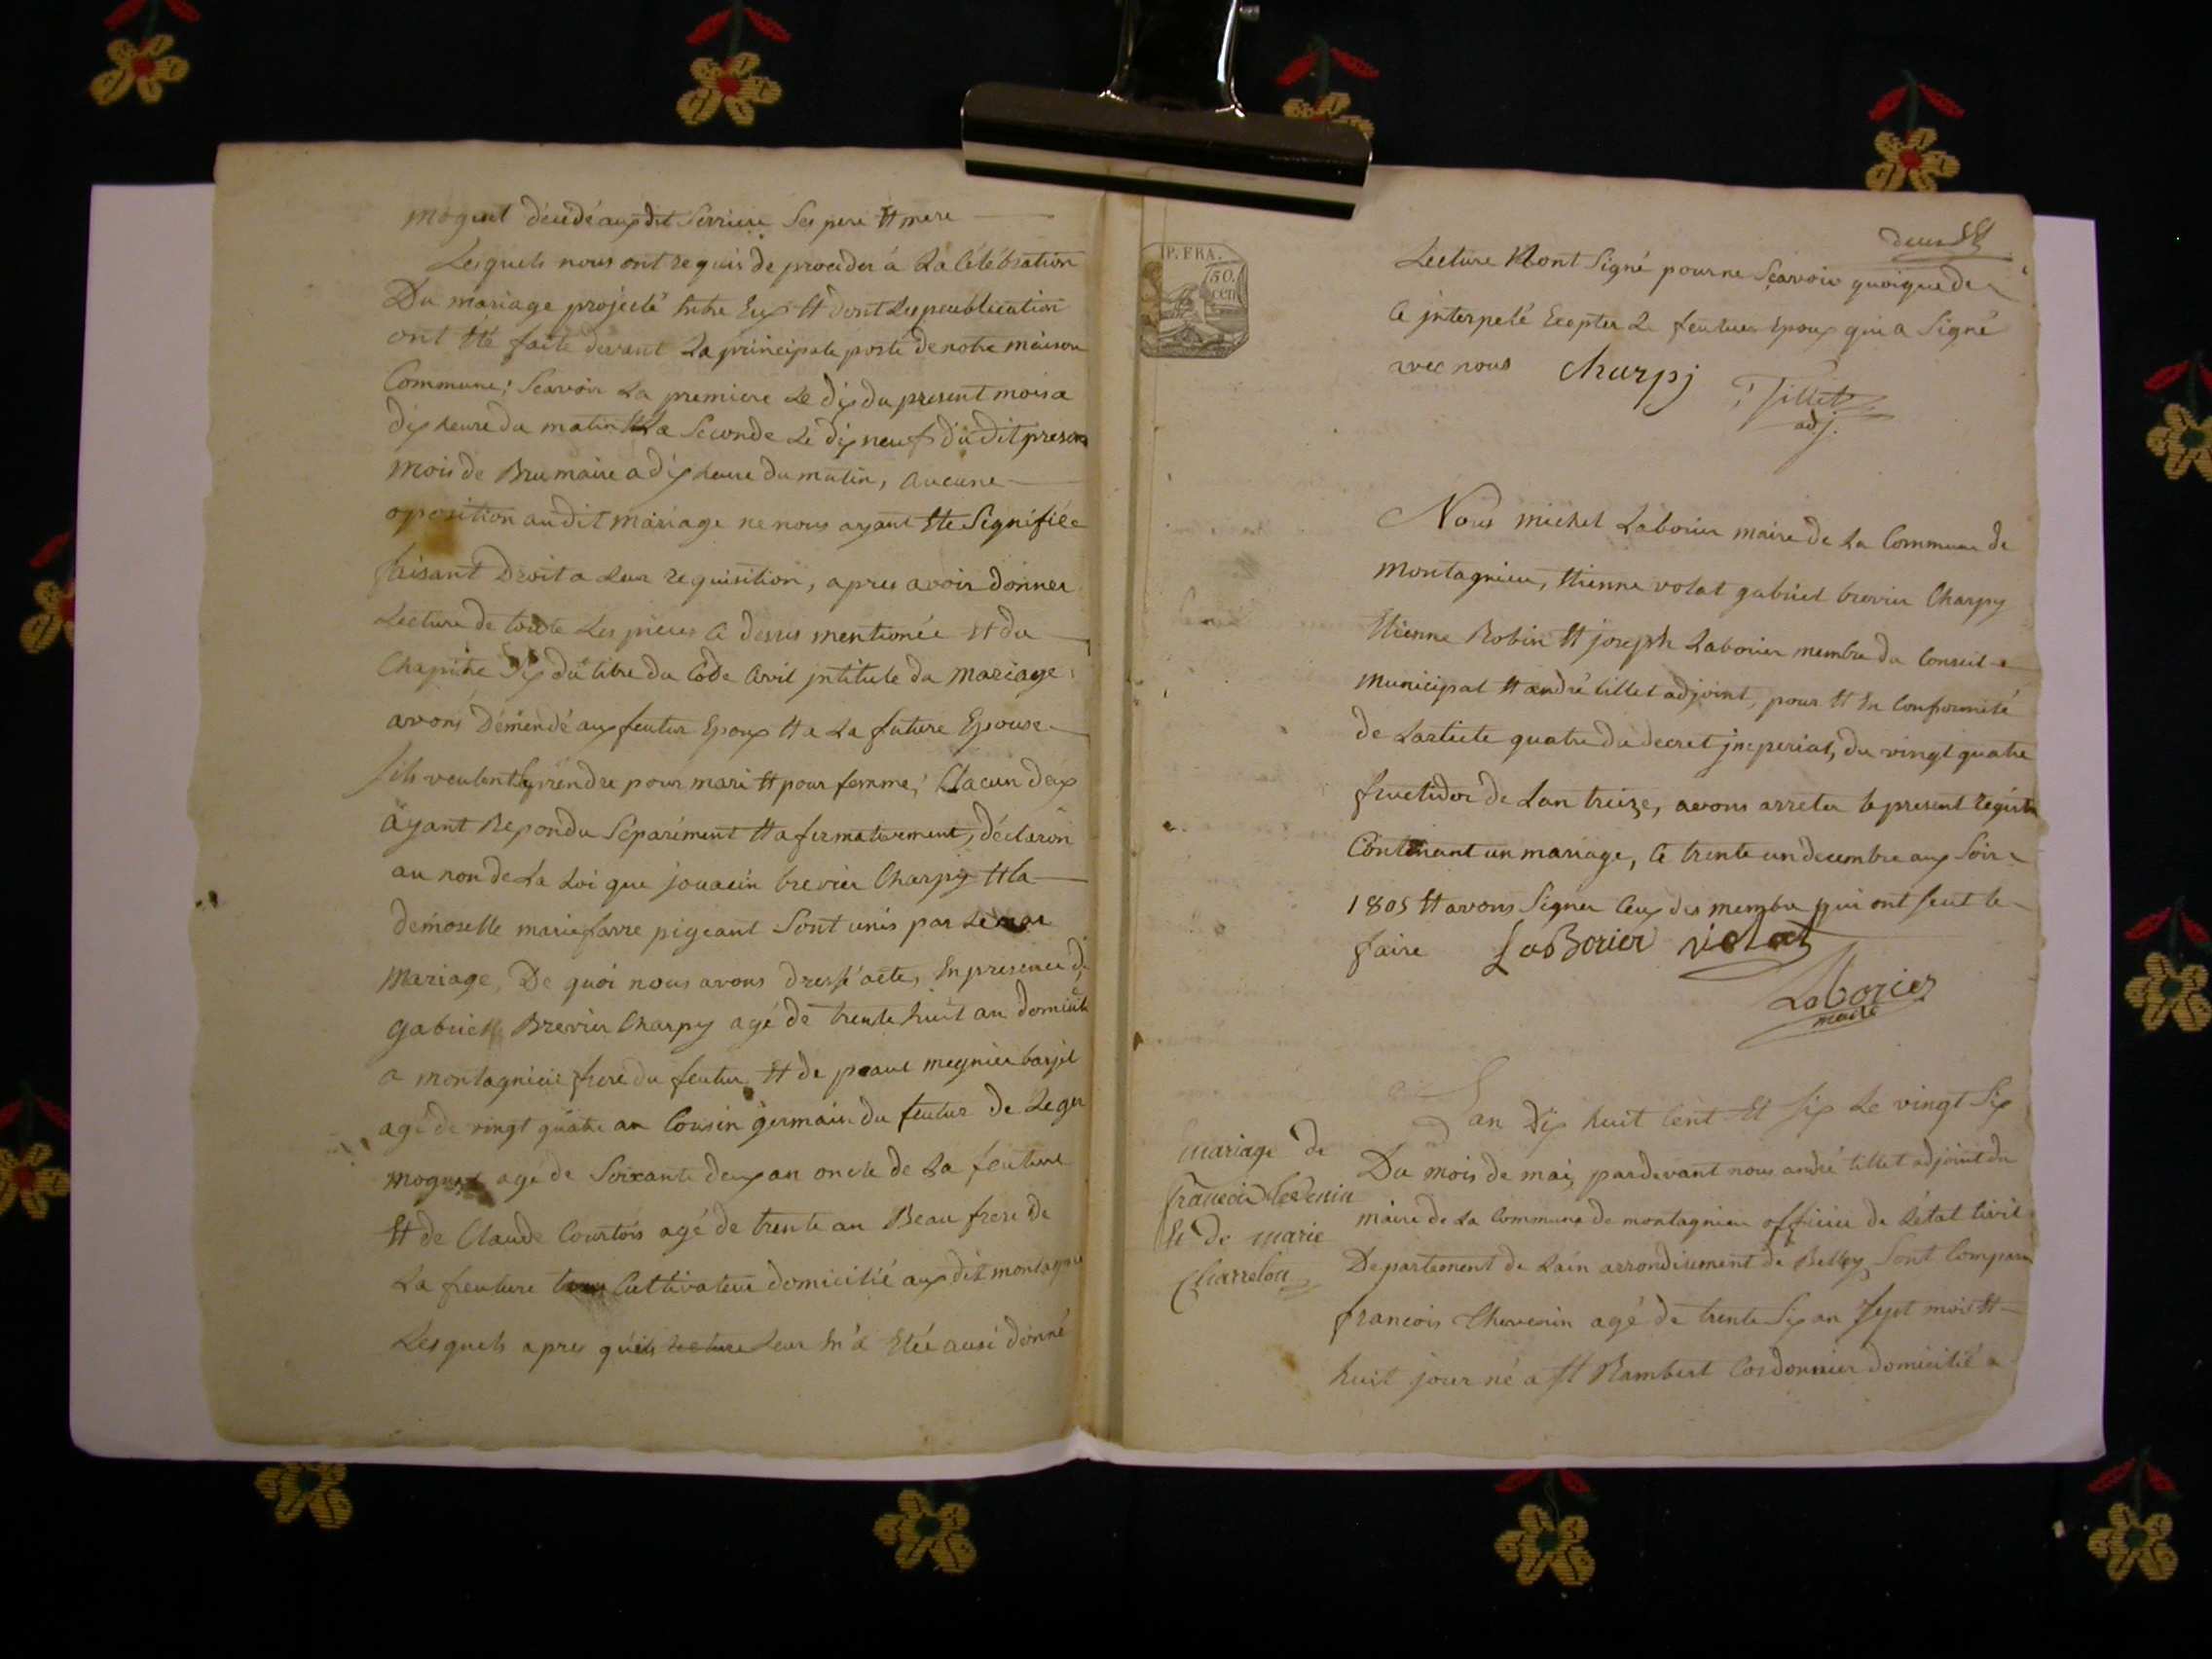 moguet décédé aux dit Serriere Ses pere Et mere
Lesquels nous ont requis de proceder á La Célébration
Du mariage projecté Entre Eux Et dont Les peublication
ont Eté faite devant La principale porte de notre maison
Commune; Scavoir La premiere Le dix du present mois a
dix heure du matin Et La Seconde Le dix neuf du dit present
mois de Brumaire a dix heure du matin, Aucune
oposition au dit mariage ne nous ayant Ete Signifiée
faisant Droit a Leur requisition, apres avoir donner
Lecture de toute Les pieces Ci dessus mentionée Et du
Chapitre Six du titre du Code Civil intitule du Mariage,
avons Démendé aux feutur Epoux Et a La future Epouse
Sils veulent Se prendre pour mari Et pour femme; Chacun deux
äyant Repondu Séparément Et afirmativement, déclaron
au non de La Loi que jouacin brevier Charpy Et la
demoselle marie favre pigeant Sont unis par Le
Mariage, De quoi nous avons dressé acte, En presence de
gabriel Brevier Charpy agé de trente huit an domicilié
a montagnieu frere du feutur, Et de paul megnier barjel
agé de vingt quatre an Cousin germain du feutur de Leger
moguet agé de Soixante deux an oncle de La feuture
Et de Claude Courtois agé de trente an Beau frere de
La feuture tous Cultivateur domicilié aux dit montagnieu
Lesquels apres qu'ils lecture Leur En a Etée ausi donné
deux
Lecture Nont Signé pour ne Sçavoir quoique de
Ce interpelé Ecepter Le feuture Epoux qui a Signé
avec nous Charpy Tillet
adj.
IP. FRA.
50.
cen
Nous michel Laborier maire de La Commune de
montagnieu, Etienne volat gabriel brevier Charpy
Etienne Robin Et joseph Laborier membre du Conseil
Municipal Et andré tillet adjoint, pour Et En Conformité
de Larticle quatre du decret imperial, du vingt quatre
fructidor de Lan treize, avons arreter le present registre
Contenant un mariage, Ce trente un decembre aux Soir
1805 Et avons Signer Ceux des membre qui ont Seut le
faire LaBorier violat
Laborier
maire
mariage de
francois chevenin
Et de marie
Charreton
Lan Dix huit Cent Et Six Le vingt Six
Du mois de mai, pardevant nous andré tillet adjoint du
maire de La Commune de montagnieu officier de Létat Civil
Departement de Lain arrondisement de Belley, Sont Comparu
francois Chevenin agé de trente Six an Sept mois Et
huit jour né a St Rambert Cordonnier domicilié a